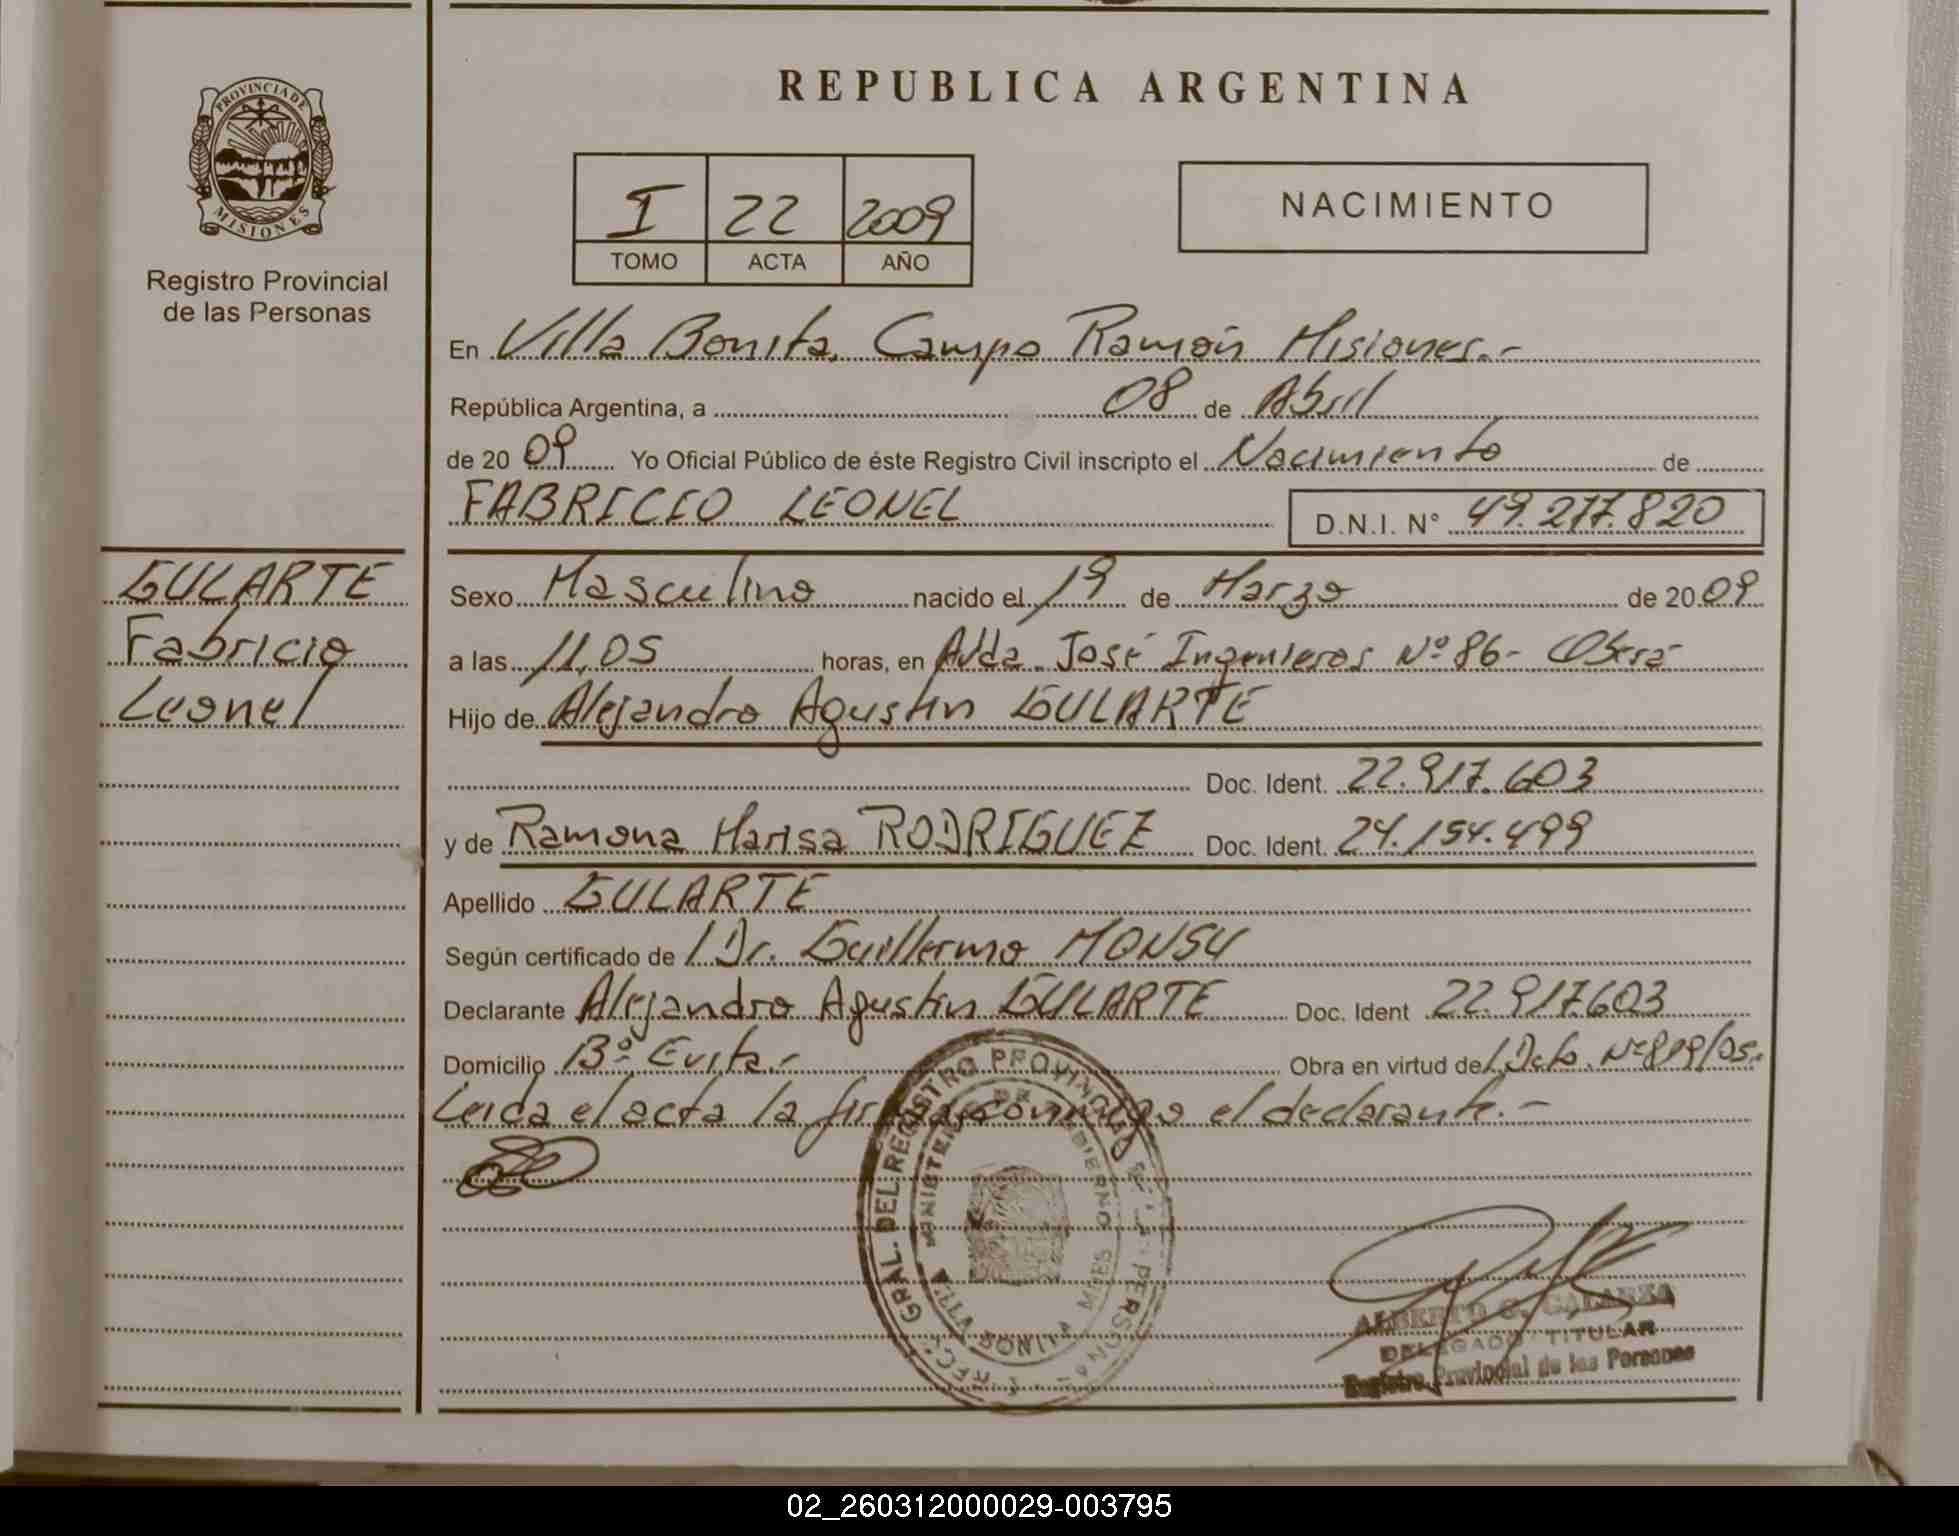 REPUBLICA ARGENTINA
PROVINCIA DE
MISIONES
Registro Provincial
de las Personas
I 22 2009
TOMO ACTA AÑO
NACIMIENTO
En Villa Bonita, Campo Ramón Misiones.-
República Argentina, a 08 de Abril
de 20 09 Yo Oficial Público de éste Registro Civil inscripto el Nacimiento de
FABRICIO LEONEL D.N.I. N° 49.277.820
GULARTE
Fabricio
Leonel
Sexo Masculino nacido el 19 de Marzo de 20 09
a las 11,05 horas, en Avda. José Ingenieros Nº 86- Oberá
Hijo de Alejandro Agustin GULARTE
Doc. Ident. 22.917.603
y de Ramona Marisa RODRIGUEZ Doc. Ident. 24.154.499
Apellido GULARTE
Según certificado de / Dr. Guillermo MONSU
Declarante Alejandro Agustin GULARTE Doc. Ident 22.917.603
Domicilio Bº Evita.- Obra en virtud de / Dcto. Nº 819/05.
Leida el acta la firma conmigo el declarante.-
GRAL. DEL REGISTRO PROVINCIAL PERSONAS
GOBIERNO MNES
VILLA BONITA
ALBERTO G. GALARZA
DELEGADO TITULAR
Registro Provincial de las Personas
02_260312000029-003795